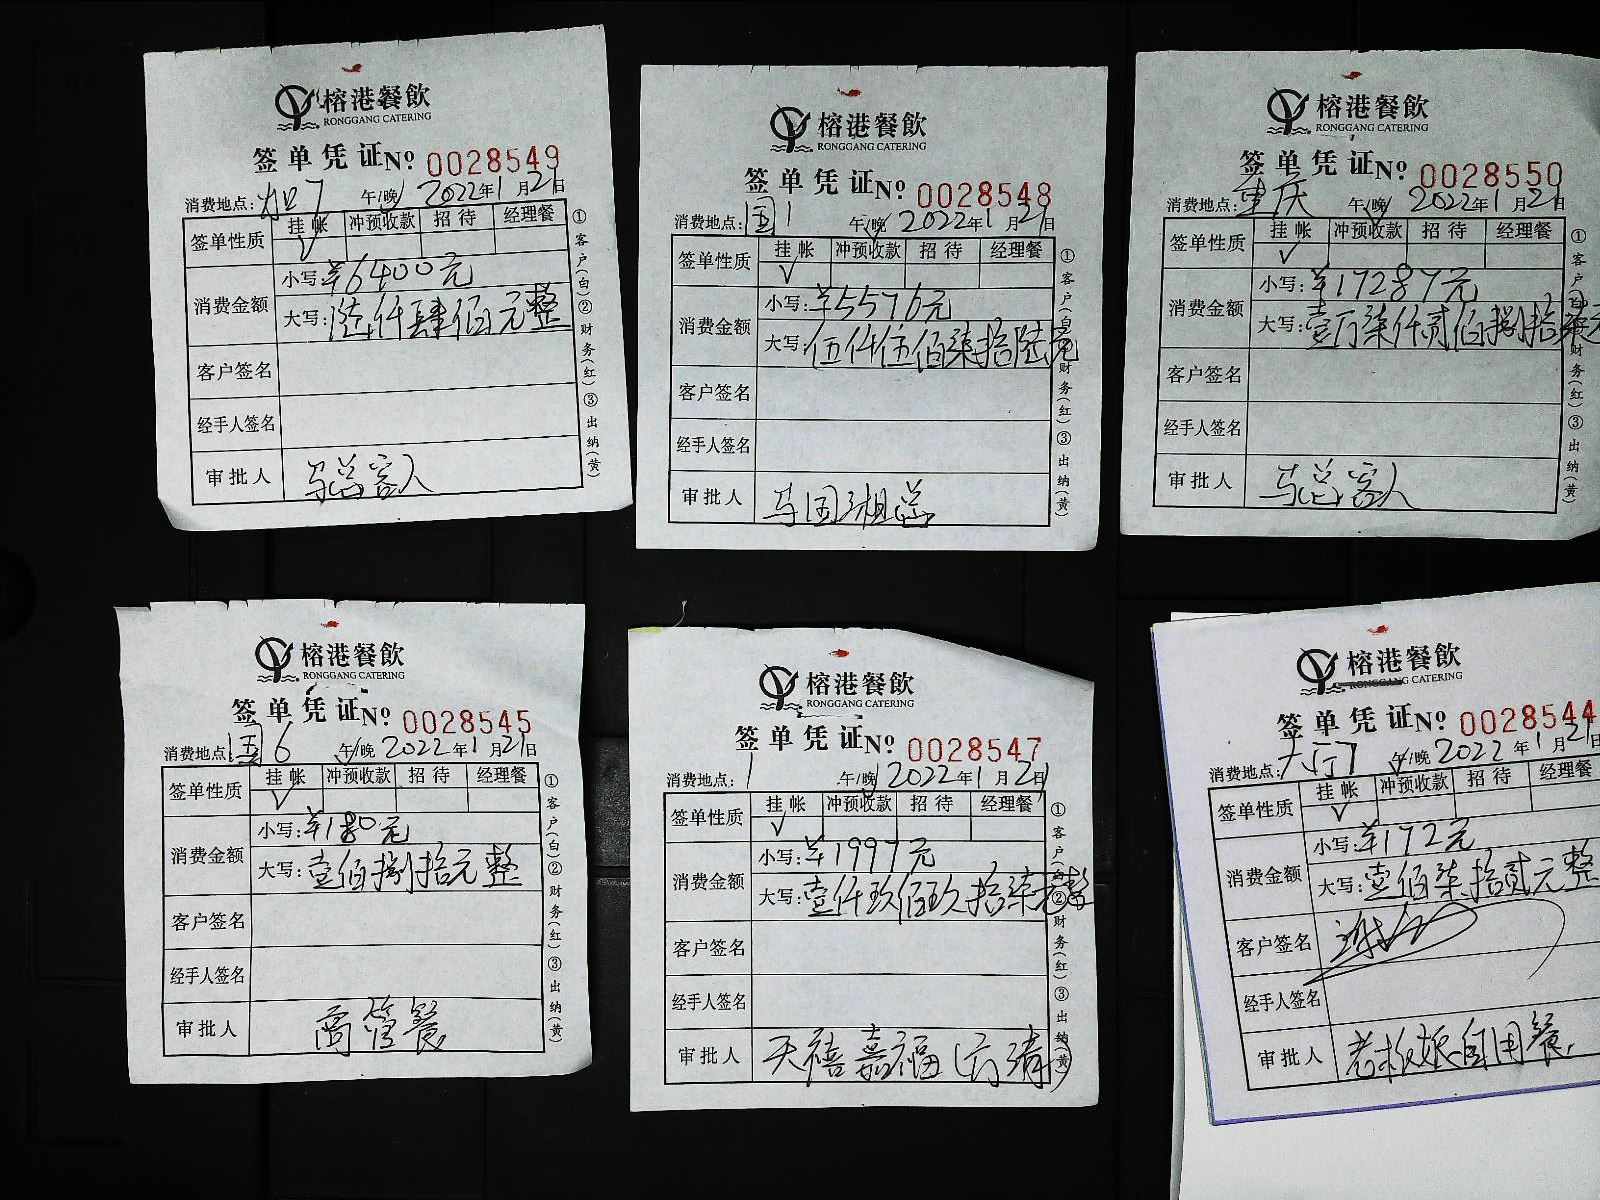 榕港餐飲
RONGGANG CATERING
签单凭证 Nº 0028549
消费地点: 午/晚 2022年1月21日
签单性质 挂帐 冲预收款 招待 经理餐
√
消费金额 小写:¥6400元
大写:陆仟肆佰元整
客户签名
经手人签名
审批人 马总客人
①客户(白)②财务(红)③出纳(黄)
榕港餐飲
RONGGANG CATERING
签单凭证 Nº 0028548
消费地点:国1 午/晚 2022年1月21日
签单性质 挂帐 冲预收款 招待 经理餐
√
消费金额 小写:¥5576元
大写:伍仟伍佰柒拾陆元
客户签名
经手人签名
审批人 马国湘总
①客户(白)②财务(红)③出纳(黄)
榕港餐飲
RONGGANG CATERING
签单凭证 Nº 0028550
消费地点:重庆 午/晚 2022年1月21日
签单性质 挂帐 冲预收款 招待 经理餐
√
消费金额 小写:¥17287元
大写:壹万柒仟贰佰捌拾柒元
客户签名
经手人签名
审批人 马总客人
①客户(白)②财务(红)③出纳(黄)
榕港餐飲
RONGGANG CATERING
签单凭证 Nº 0028545
消费地点:国6 午/晚 2022年1月21日
签单性质 挂帐 冲预收款 招待 经理餐
√
消费金额 小写:¥180元
大写:壹佰捌拾元整
客户签名
经手人签名
审批人 商管餐
①客户(白)②财务(红)③出纳(黄)
榕港餐飲
RONGGANG CATERING
签单凭证 Nº 0028547
消费地点:1 午/晚 2022年1月21日
签单性质 挂帐 冲预收款 招待 经理餐
√
消费金额 小写:¥1997元
大写:壹仟玖佰玖拾柒元整
客户签名
经手人签名
审批人 天禧嘉福(宴请)
①客户(白)②财务(红)③出纳(黄)
榕港餐飲
RONGGANG CATERING
签单凭证 Nº 0028544
消费地点:大厅7 午/晚 2022年1月21日
签单性质 挂帐 冲预收款 招待 经理餐
√
消费金额 小写:¥172元
大写:壹佰柒拾贰元整
客户签名
经手人签名
审批人 老板娘自用餐